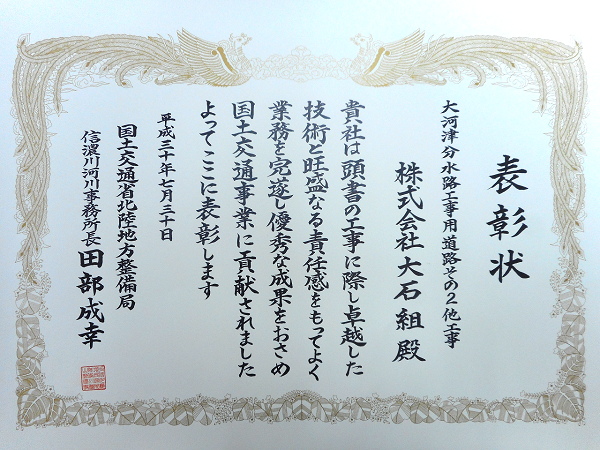 表彰状
大河津分水路工事用道路その2他工事
株式会社大石組殿
貴社は頭書の工事に際し卓越した
技術と旺盛なる責任感をもってよく
業務を完遂し優秀な成果をおさめ
国土交通事業に貢献されました
よってここに表彰します
平成三十年七月三十日
国土交通省北陸地方整備局
信濃川河川事務所長 田部成幸